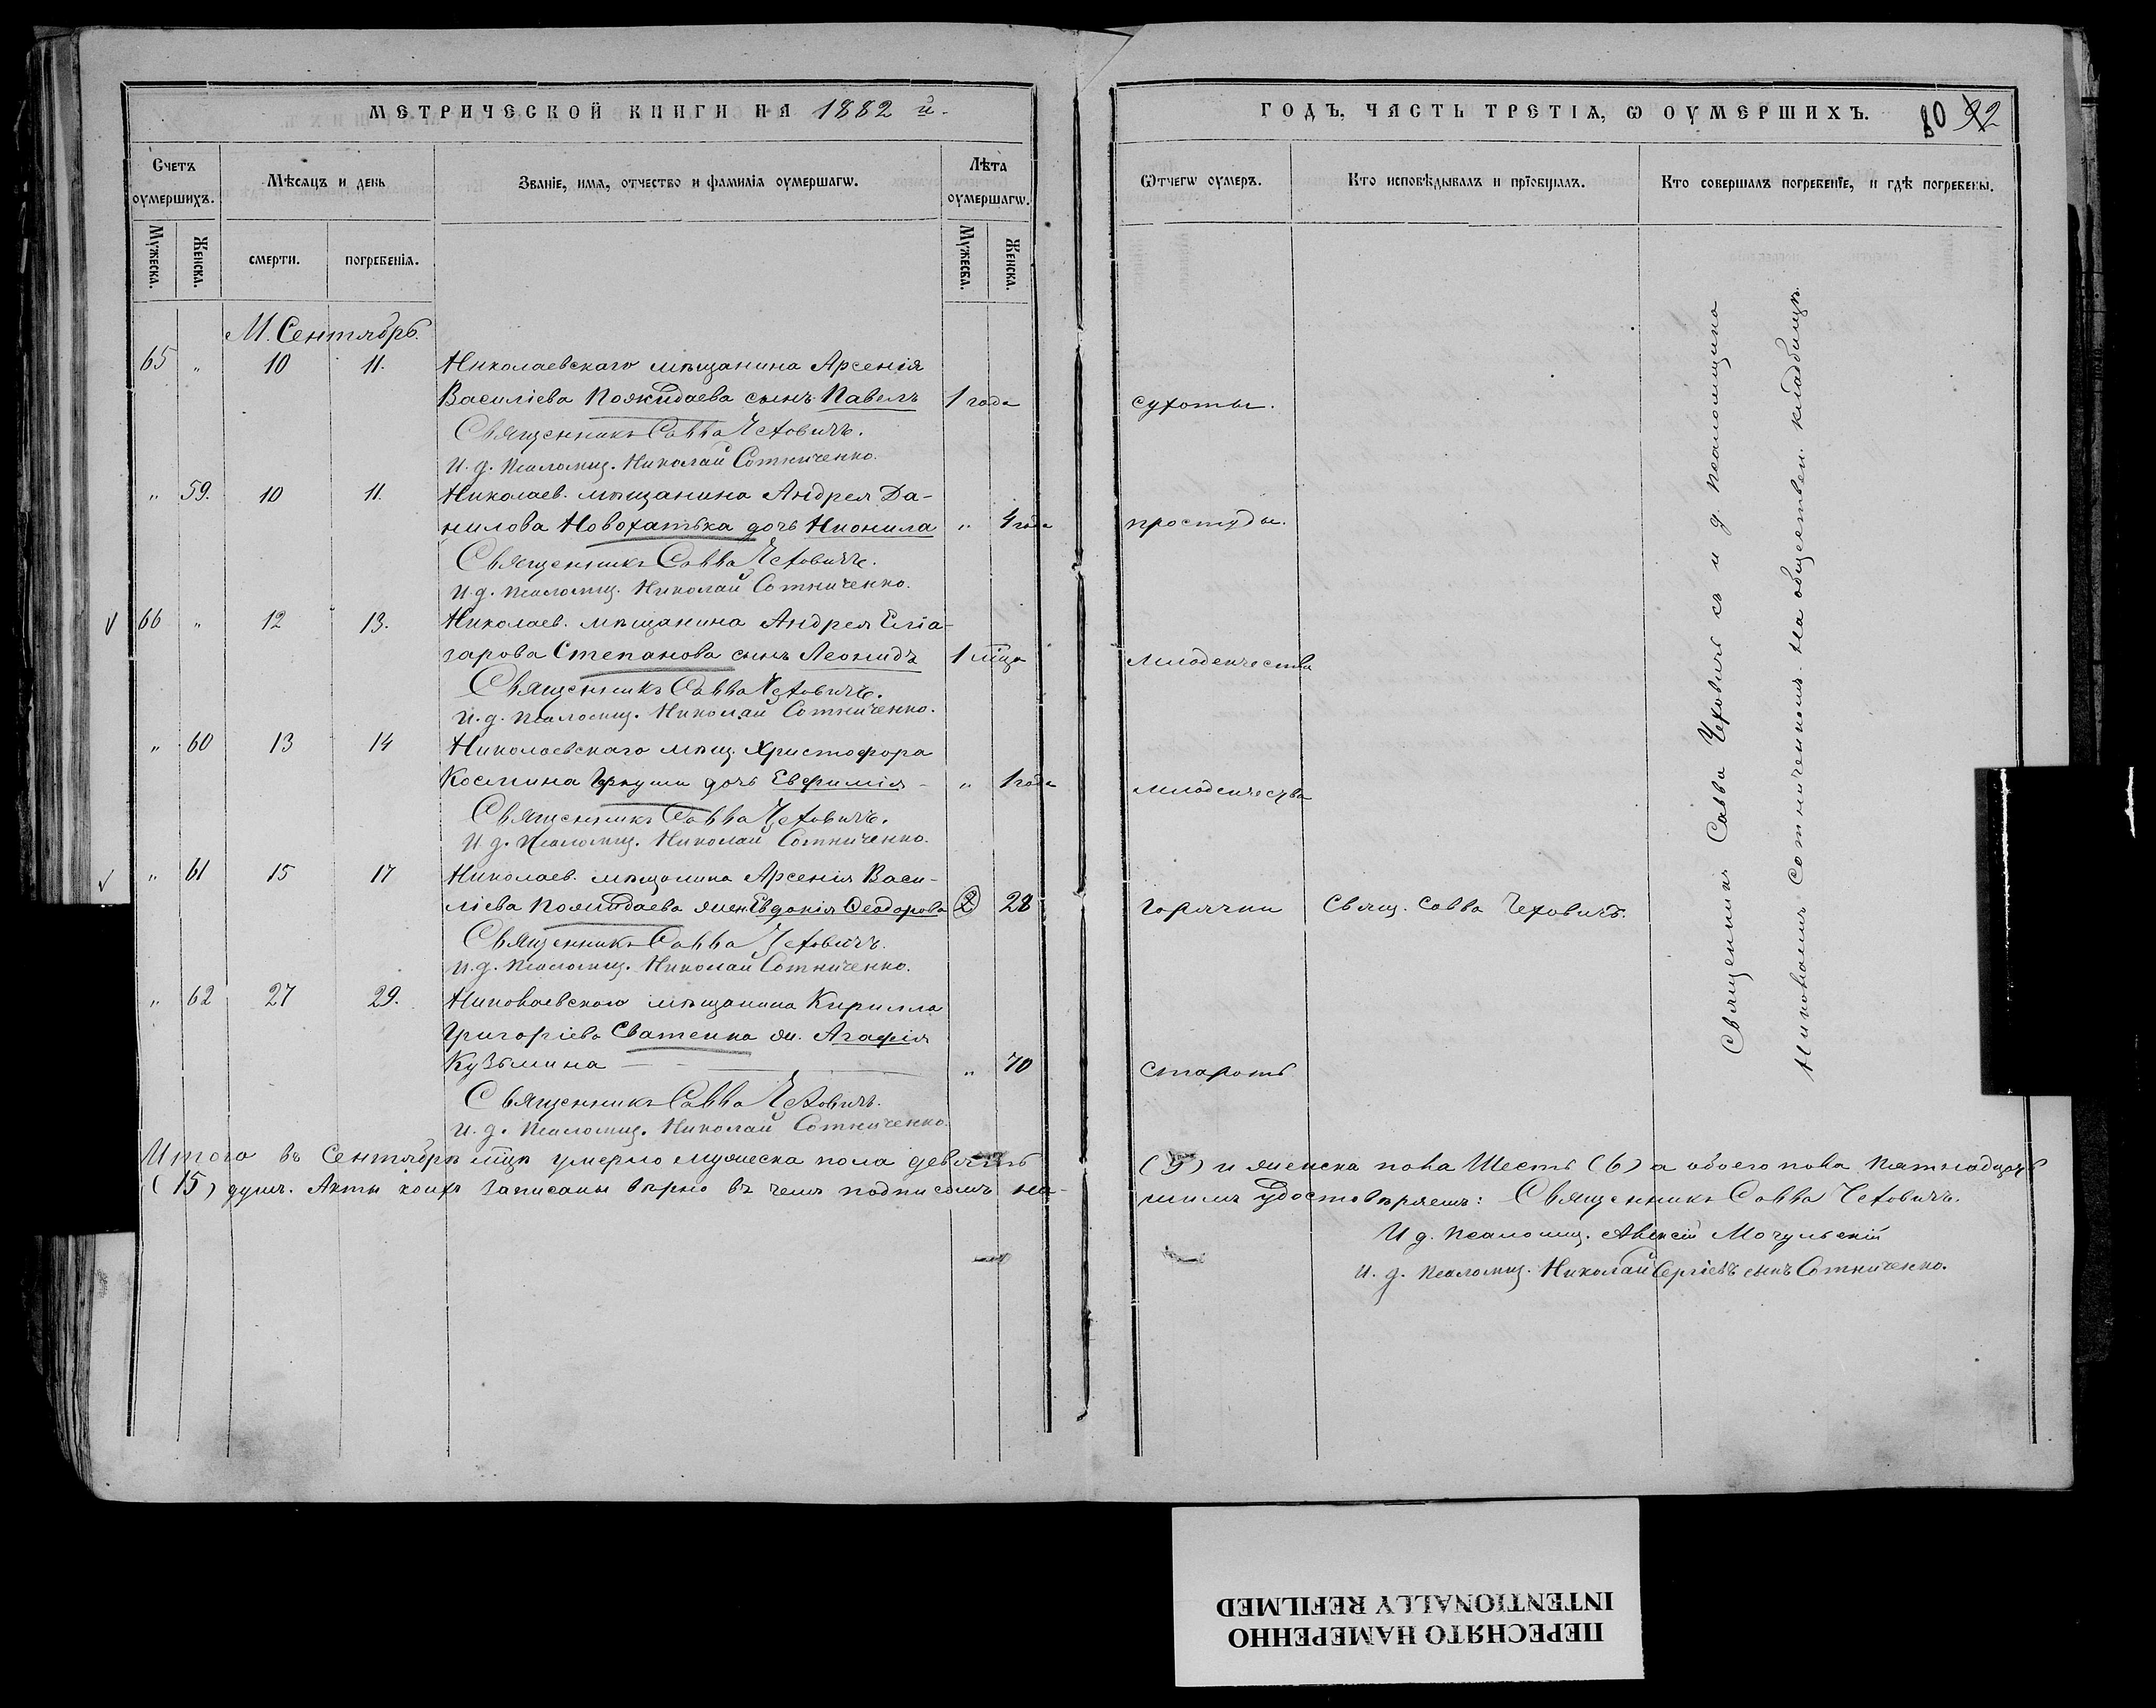 МЕТРИЧЕСКОЙ КНИГИ НА 1882 й.
Счетъ оумершихъ.
Мѣсяцъ и день
Званіе, имя, отчество и фамилія оумершагѡ.
Лѣта оумершагѡ.
Мужеска.
Женска.
смерти.
погребенія.
Мужеска.
Женска.
М. Сентябрь.
65 " 10 11. Николаевскаго мѣщанина Арсенія
Василіева Пожидаева сынъ Павелъ 1 года
Священникъ Савва Чеховичъ.
И. д. псаломщ. Николай Сотниченко.
" 59. 10 11. Николаев. мѣщанина Андрея Да-
нилова Новохатька дочь Нионила " 4 года
Священникъ Савва Чеховичъ.
И. д. псаломщ. Николай Сотниченко.
66 " 12 13. Николаев. мѣщанина Андрея Еліа-
зарова Степанова сынъ Леонидъ 1 мца
Священникъ Савва Чеховичъ.
И. д. псаломщ. Николай Сотниченко.
" 60 13 14 Николаевскаго мѣщ. Христофора
Космина дочь Евфимія - " 1 года
Священникъ Савва Чеховичъ.
И. д. псаломщ. Николай Сотниченко.
" 61 15 17 Николаев. мѣщанина Арсенія Васи-
ліева Пожидаева жен. Евдокія Феодорова 28
Священникъ Савва Чеховичъ.
И. д. псаломщ. Николай Сотниченко.
" 62 27 29. Николаевскаго мѣщанина Кирилла
Григоріева Сватенка ж. Агафія
Кузьмина " 70
Священникъ Савва Чеховичъ.
И. д. псаломщ. Николай Сотниченко.
Итого въ Сентябрѣ мцѣ умерло мужеска пола девять
(15) душъ. Акты коихъ записаны вѣрно въ чемъ подписомъ на-
ГОДЪ, ЧАСТЬ ТРЕТІЯ, Ѡ ОУМЕРШИХЪ.
80 92
Ѿчегѡ оумеръ.
Кто исповѣдывалъ и прїобщалъ.
Кто совершалъ погребенїе, и гдѣ погребены.
сухоты.
простуды.
младенчества
младенчества
горячки Свящ. Савва Чеховичъ.
старость
Священникъ Савва Чеховичъ съ и д. псаломщика
Николаемъ Сотниченкомъ. На обществен. кладбищѣ.
(9) и женска пола Шесть (6) а обоего пола пятнадцать
шимъ удостовѣряемъ: Священникъ Савва Чеховичъ.
И д. псаломщ. Алексій Мочульскій
И. д. псаломщ. Николай Сергіевъ сынъ Сотниченко.
ПЕРЕСНЯТО НАМЕРЕННО
INTENTIONALLY REFILMED